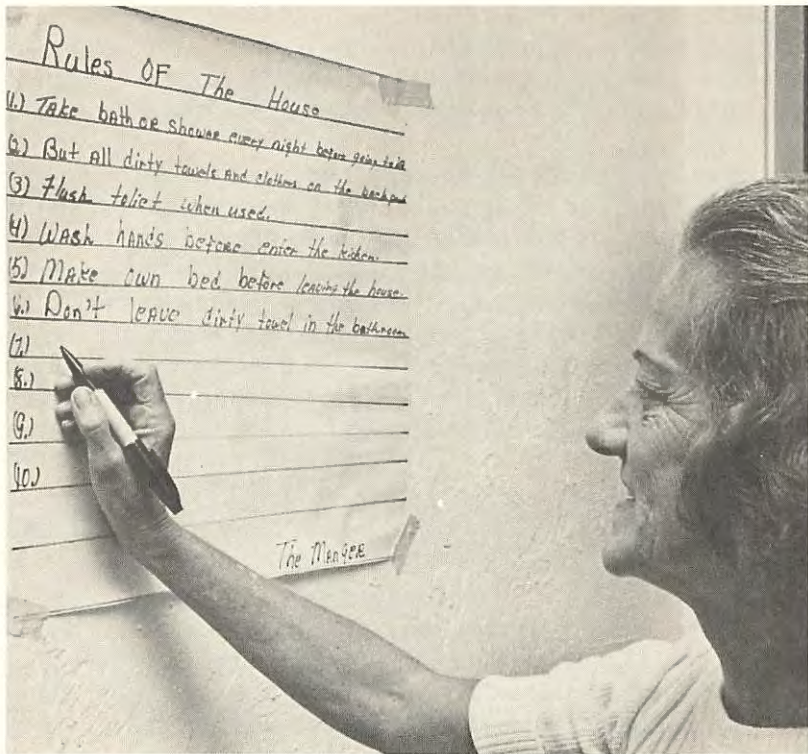 Rules OF The House
(1.) Take bath or shower every night before going to bed
(2) But All dirty towels And clothes on the backporch
(3) Flush toliet when used.
(4) Wash hands before enter the kichen.
(5) Make own bed before leaving the house.
(6.) Don't leave dirty towel in the bathroom
(7.)
(8.)
(9.)
(10.)
The Manger